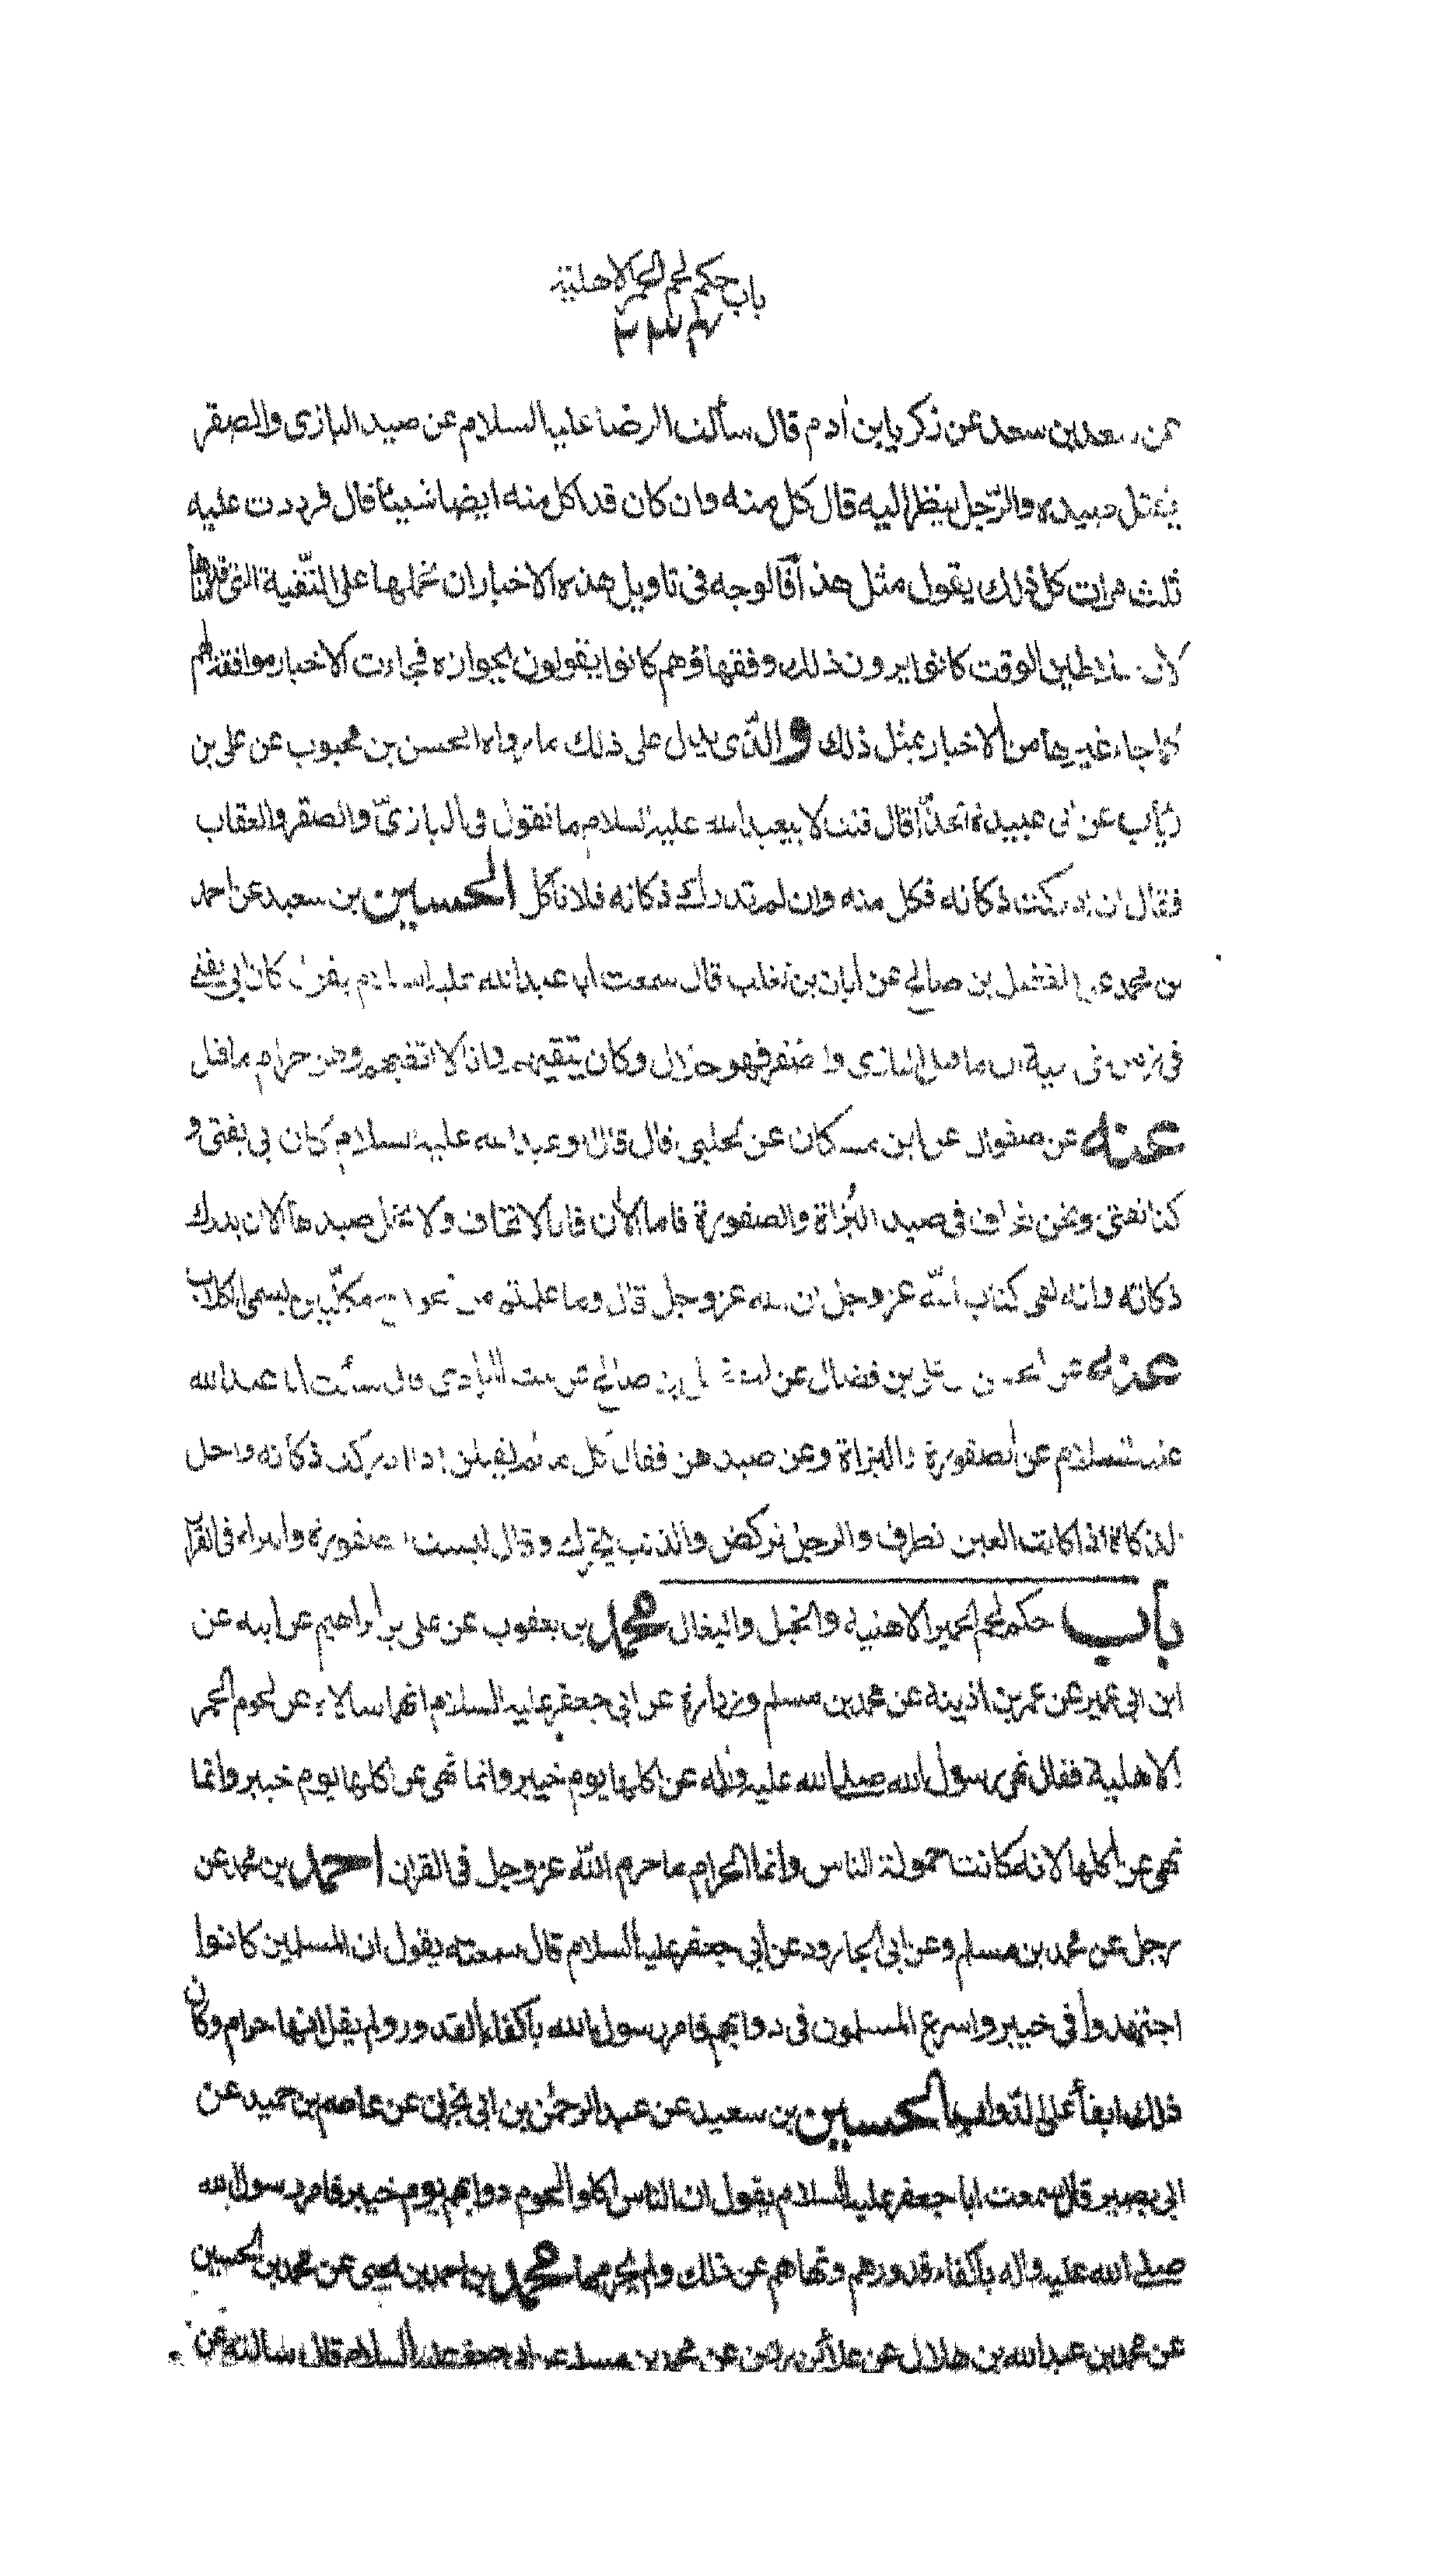 باب حكم لحم الحمر الاهلية
عن سعد بن سعد عن زكريا بن ادم قال سألت الرضا عليه السلام عن صيد البازى والصقر
يقتل صيده والرجل ينظر اليه قال كل منه وان كان قد اكل منه ايضا شيئا قال فرددت عليه
ثلث مرات كل ذلك يقول مثل هذا فالوجه فى تاويل هذه الاخبار ان نحملها على التقية التى قدمناها
لان سلاطين الوقت كانوا يرون ذلك وفقهاؤهم كانوا يقولون بجوازه فجاءت الاخبار موافقة لهم
كما جاء غيرها من الاخبار بمثل ذلك والذى يدل على ذلك ما رواه الحسن بن محبوب عن على بن
رئاب عن ابى عبيدة الحذّاء قال قلت لابيعبد الله عليه السلام ما تقول فى البازىّ والصقر والعقاب
فقال ان ادركت ذكاته فكل منه وان لم تدرك ذكاته فلا تأكل الحسين بن سعيد عن احمد
بن محمد عن المفضل بن صالح عن أبان بن تغلب قال سمعت ابا عبد الله عليه السلام يقول كان ابى يفتى
فى زمن بنى امية ان ما قتل البازى والصقر فهو حلال وكان يتقيهم وانا لا اتقيهم وهو حرام ما قتل
عنه عن صفوان عن ابن مسكان عن الحلبى قال قال ابو عبد الله عليه السلام كان ابى يفتى و
كنا نفتى ونحن نخاف فى صيد البزاة والصقورة فاما الأن فانا لا نخاف ولا يحل صيدها الا ان يدرك
ذكاته وانه لفى كتاب الله عز وجل ان الله عز وجل قال وما علمتم من الجوارح مكلّبين يسمى الكلاب
عنه عن الحسن بن على بن فضال عن المفضل بن صالح عن ليث المرادى قال سألت ابا عبد الله
عليه السلام عن الصقورة والبزاة وعن صيدهن فقال كل ما لم يقتلن اذا ادركت ذكاته واخر
الذكاة اذا كانت العين تطرف والرجل تركض والذنب يتحرك وقال ليست الصقورة والبزاة فى القرآن
باب حكم لحم الحمير الاهلية والخيل والبغال محمد بن يعقوب عن على بن ابراهيم عن ابيه عن
ابن ابى عمير عن عمر بن اذينه عن محمد بن مسلم وزرارة عن ابى جعفر عليه السلام انهما سالاه عن لحوم الحمر
الاهلية فقال نهى رسول الله صلى الله عليه واله عن اكلها يوم خيبر وانما نهى عن اكلها يوم خيبر وانما
نهى عن اكلها لانه كانت حمولة الناس وانما الحرام ما حرم الله عز وجل فى القران احمد بن محمد عن
رجل عن محمد بن مسلم وعن ابى الجارود عن ابى جعفر عليه السلام قال سمعته يقول ان المسلمين كانوا
اجتهدوا فى خيبر واسرع المسلمون فى دوابهم فامر رسول الله باكفاء القدور ولم يقل انها حرام وكان
ذلك ابقاء على الدواب الحسين بن سعيد عن عبد الرحمن بن ابى نجران عن عاصم بن حميد عن
ابى بصير قال سمعت ابا جعفر عليه السلام يقول ان الناس اكلوا لحوم دوابهم يوم خيبر فامر رسول الله
صلى الله عليه واله باكفاء قدورهم ونهاهم عن ذلك ولم يحرمها محمد بن احمد بن يحيى عن محمد بن الحسين
عن محمد بن عبد الله بن هلال عن علاء بن رزين عن محمد بن مسلم عن ابى جعفر عليه السلام قال سالته عن